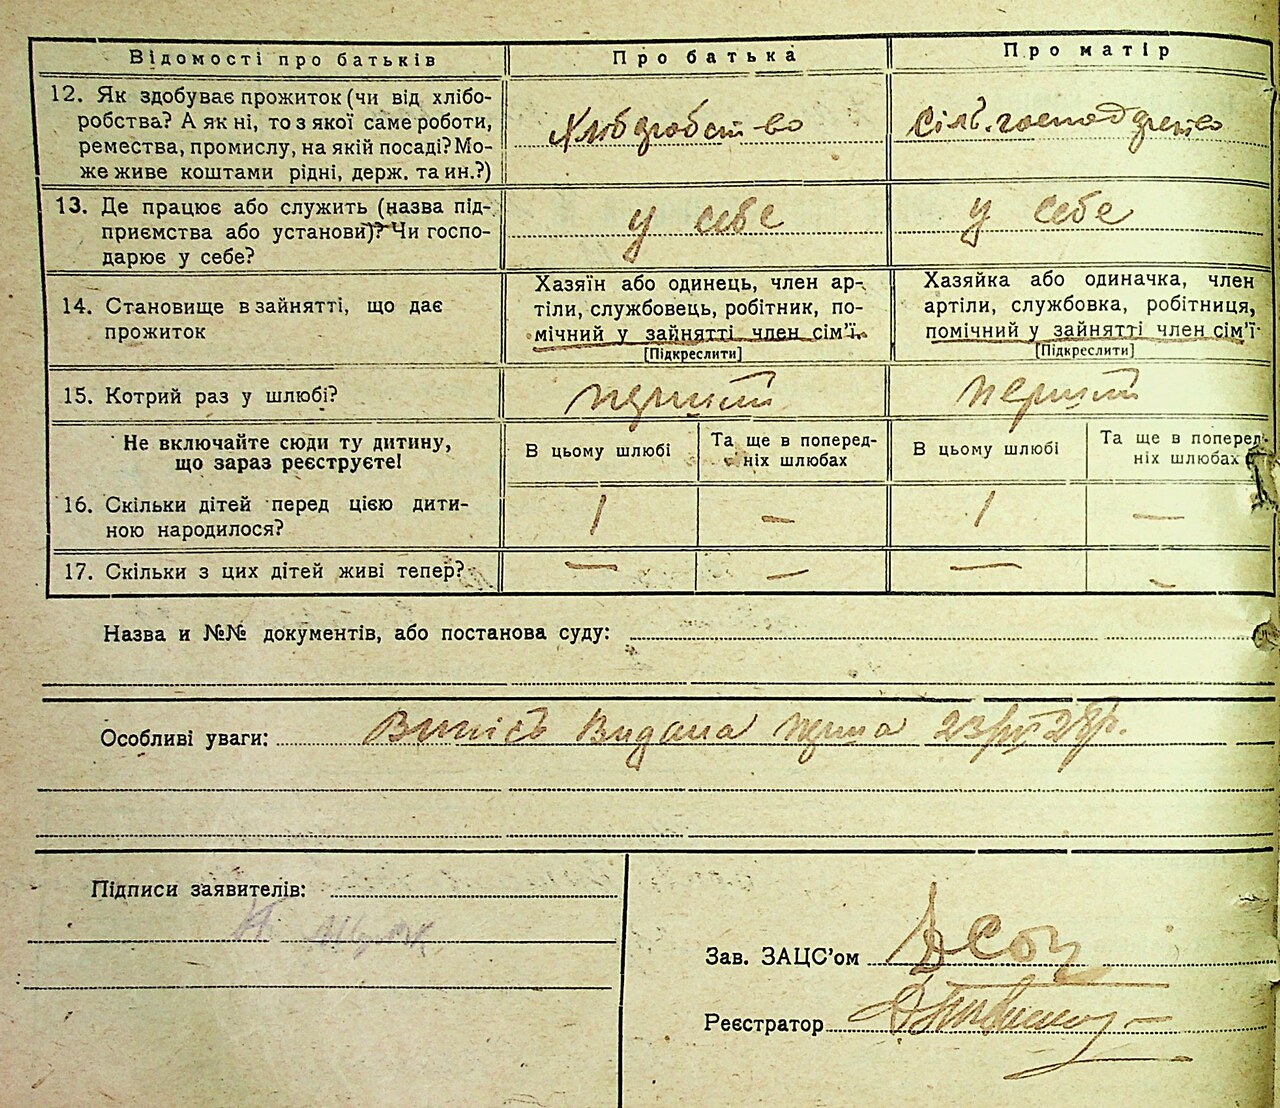 Відомості про батьків
Про батька
Про матір
12. Як здобуває прожиток (чи від хлібо-
робства? А як ні, то з якої саме роботи,
ремества, промислу, на якій посаді? Мо-
же живе коштами рідні, держ. та ин.?)
Хліборобство
Сільс.господарство
13. Де працює або служить (назва під-
приємства або установи)? Чи госпо-
дарює у себе?
у себе
у себе
14. Становище в зайнятті, що дає
прожиток
Хазяїн або одинець, член ар-
тіли, службовець, робітник, по-
мічний у зайнятті член сім'ї.
[Підкреслити]
Хазяйка або одиначка, член
артіли, службовка, робітниця,
помічний у зайнятті член сім'ї
[Підкреслити]
15. Котрий раз у шлюбі?
перший
перший
Не включайте сюди ту дитину,
що зараз реєструєте!
В цьому шлюбі
Та ще в поперед-
ніх шлюбах
В цьому шлюбі
Та ще в поперед-
ніх шлюбах
16. Скільки дітей перед цією дити-
ною народилося?
1
—
1
—
17. Скільки з цих дітей живі тепер?
—
—
—
—
Назва и №№ документів, або постанова суду:
Особливі уваги: Випісь Видана 23/ 28р.
Підписи заявителів:
Зав. ЗАЦС'ом
Реєстратор